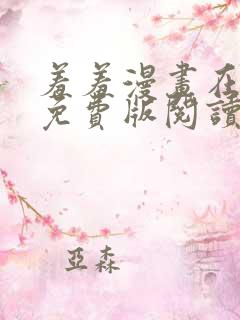 羞羞漫畫在
免費版閱讀
亞森